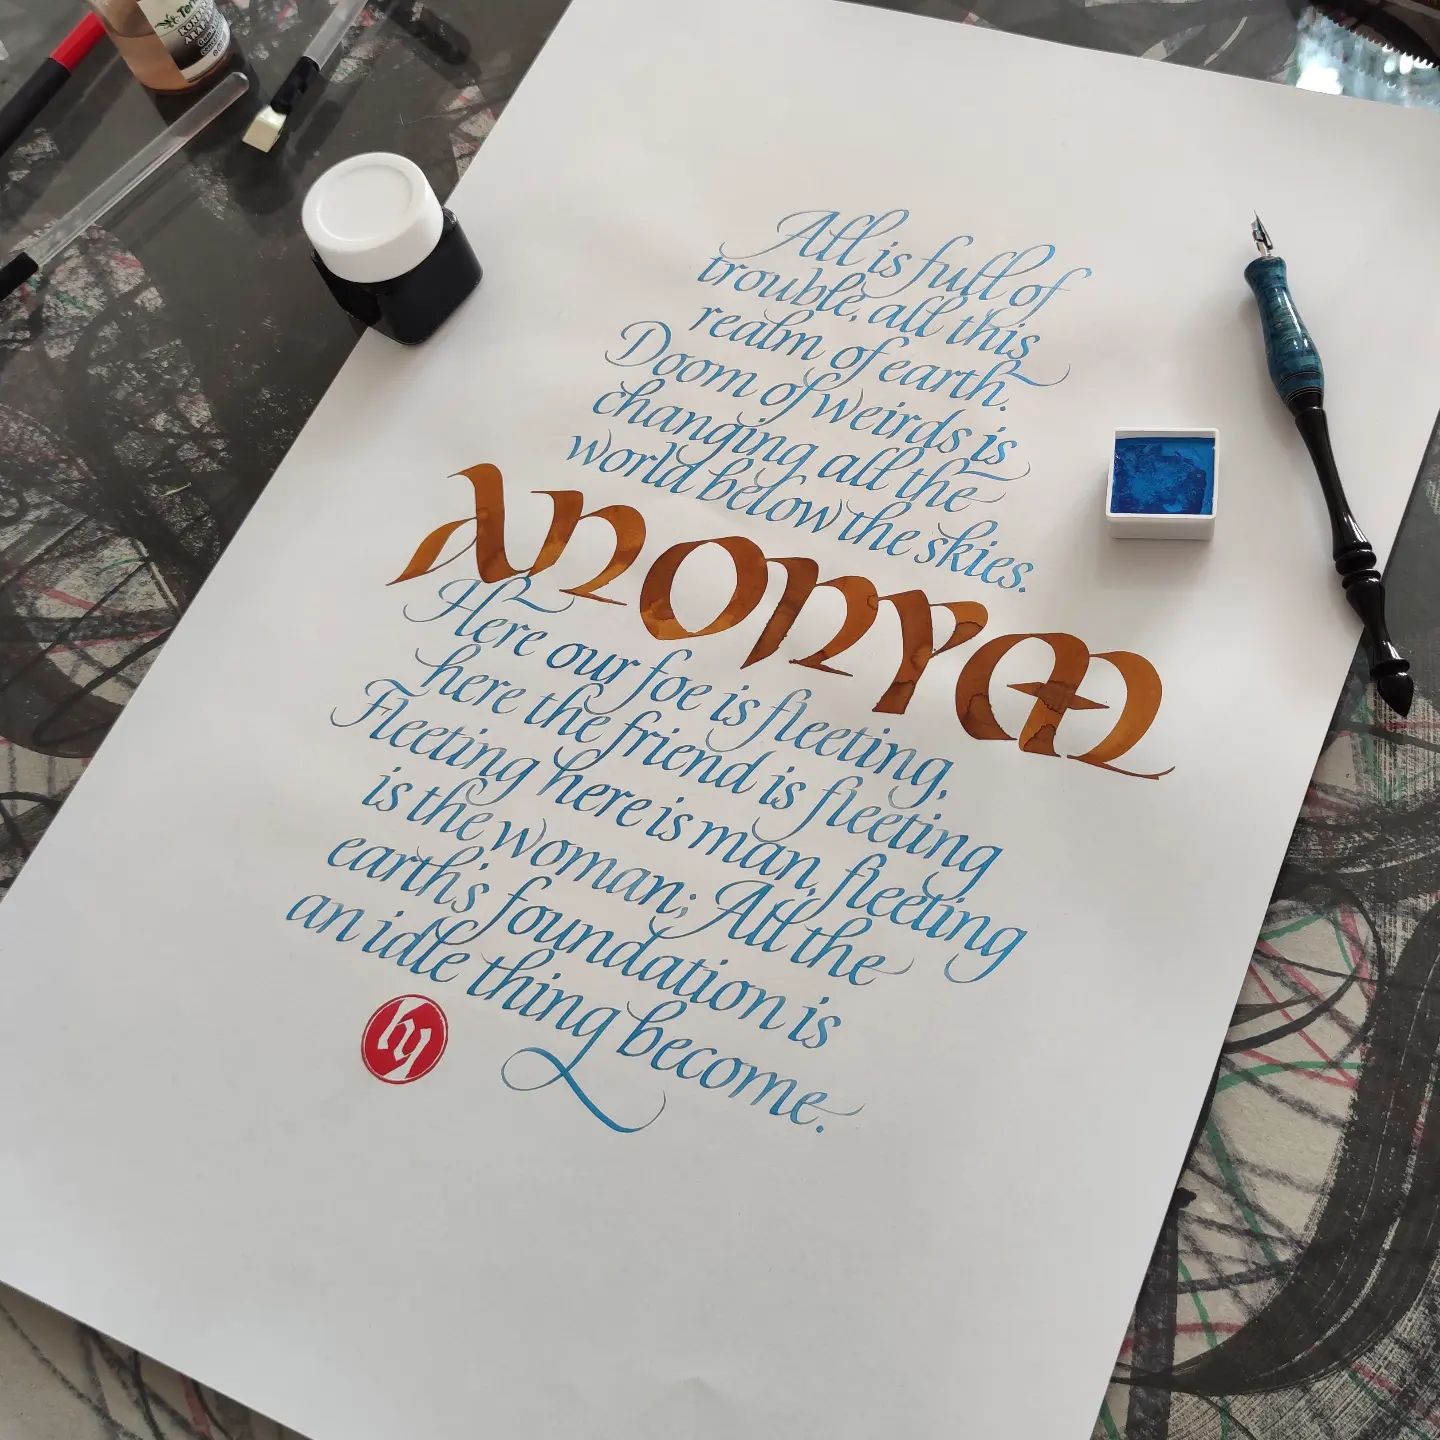 All is full of
trouble, all this
realm of earth.
Doom of weirds is
changing all the
world below the skies.
ANONYM
Here our foe is fleeting,
here the friend is fleeting
Fleeting here is man, fleeting
is the woman; All the
earth's foundation is
an idle thing become.
hy